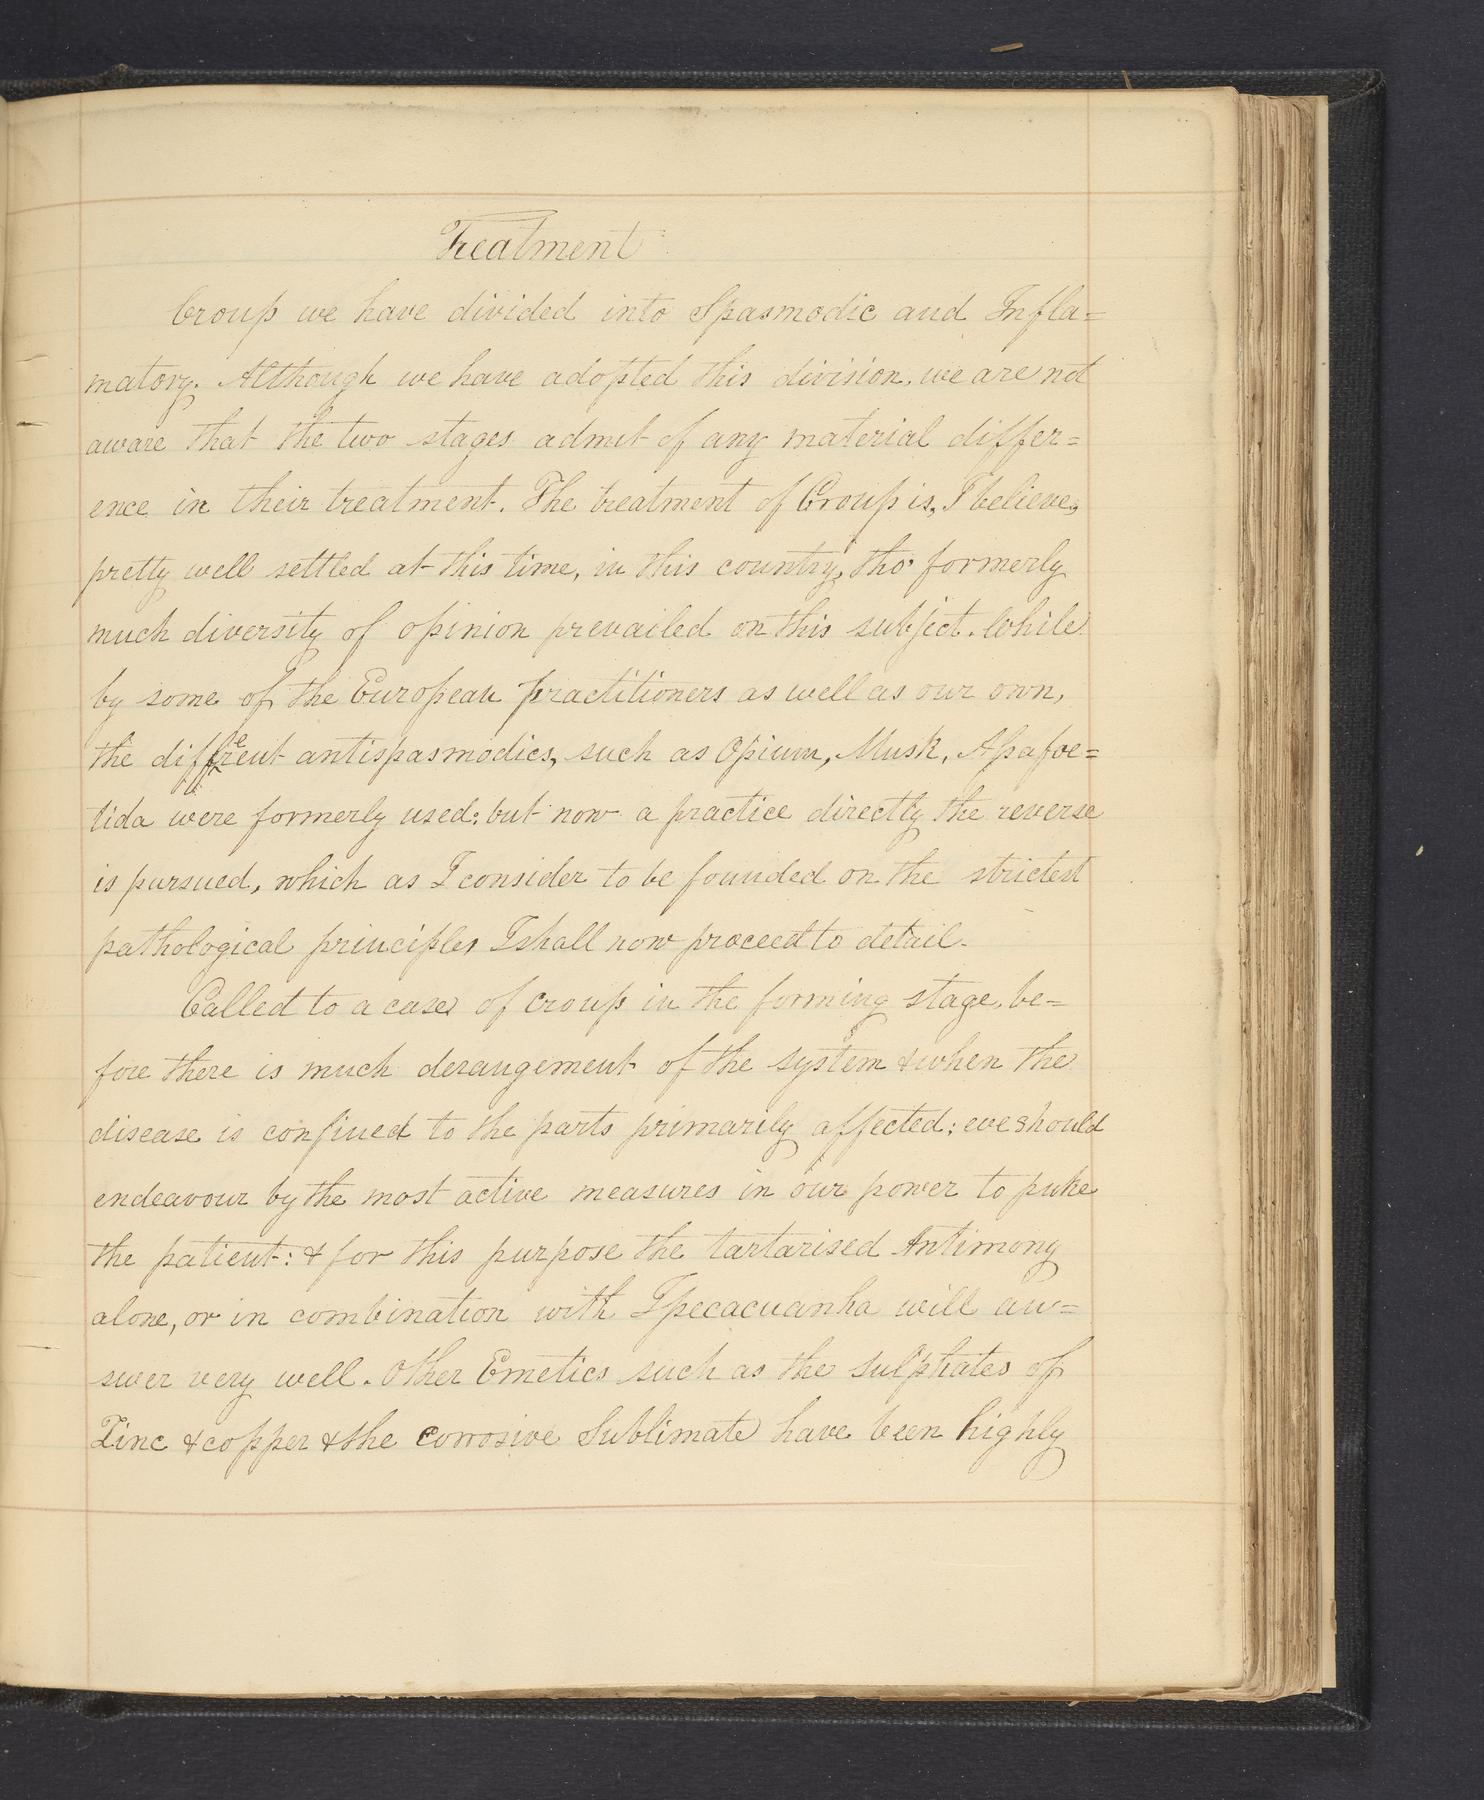 Treatment
Croup we have divided into Spasmodic and Infla=
matory. Although we have adopted this division, we are not
aware that the two stages admit of any material differ=
ence in their treatment. The treatment of Croup is, I believe,
pretty well settled at this time, in this country, tho' formerly
much diversity of opinion prevailed on this subject. While
by some of the European practitioners as well as our own,
the different antispasmodics, such as Opium, Musk, Assafoe=
tida were formerly used; but now a practice directly the reverse
is pursued, which as I consider to be founded on the strictest
pathological principles I shall now proceed to detail.
Called to a case of croup in the forming stage, be=
fore there is much derangement of the system & when the
disease is confined to the parts primarily affected; we should
endeavour by the most active measures in our power to puke
the patient: & for this purpose the tartarised Antimony
alone, or in combination with Ipecacuanha will an=
swer very well. Other Emetics such as the sulphates of
Zinc & copper & the corrosive Sublimate have been highly